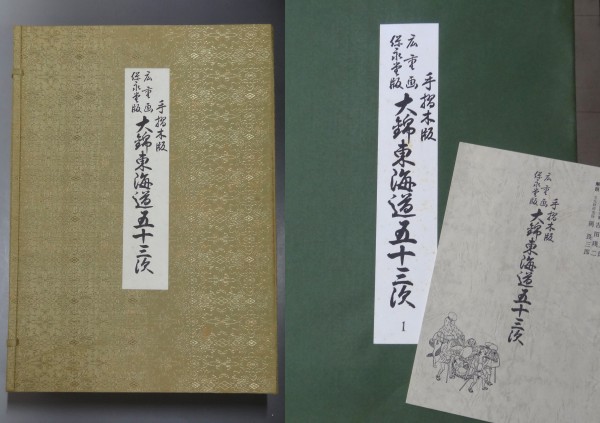 手摺木版
広重画
保永堂版
大錦東海道五十三次
手摺木版
広重画
保永堂版
大錦東海道五十三次
1
手摺木版
広重画
保永堂版
大錦東海道五十三次